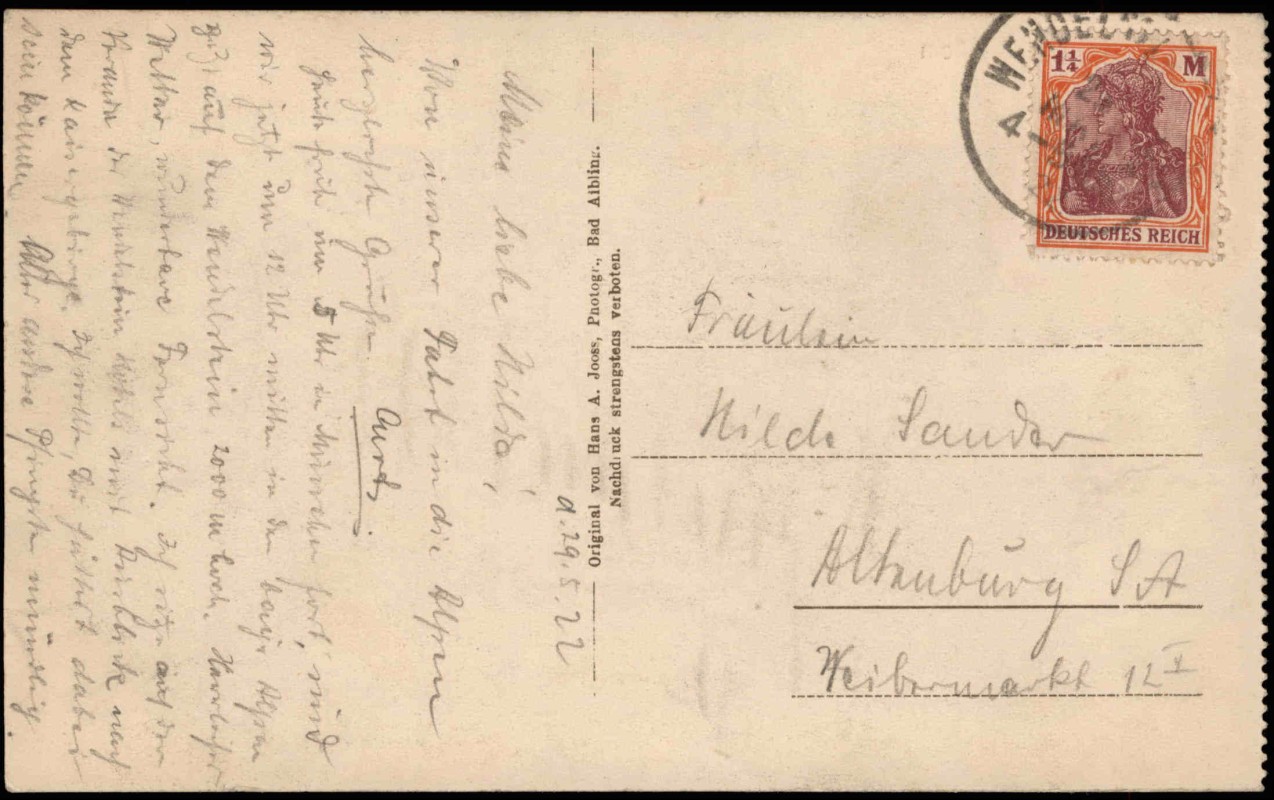 d. 29.5.22
Meine liebe Hilde,
Von unserer Fahrt in die Alpen
herzlichste Grüße.
Curt.
Heute früh um 5 Uhr in München fort, sind
wir jetzt um 12 Uhr mitten in den bayr. Alpen
auf dem Wendelstein 2000 m hoch. Herrliches
Wetter, wunderbare Fernsicht. Ich sitze auf der
Veranda des Wendelstein Hotels mit Ausblick nach
dem Kaisergebirge. Ich wollte, Du hättest dabei
sein können. Alles andere Pfingsten mündlich.
Original von Hans A. Jooss, Photogr., Bad Aibling.
Nachdruck strengstens verboten.
WENDELST
1¼ M
DEUTSCHES REICH
Fräulein
Hilde Sander
Altenburg S A
Weibermarkt 12 I